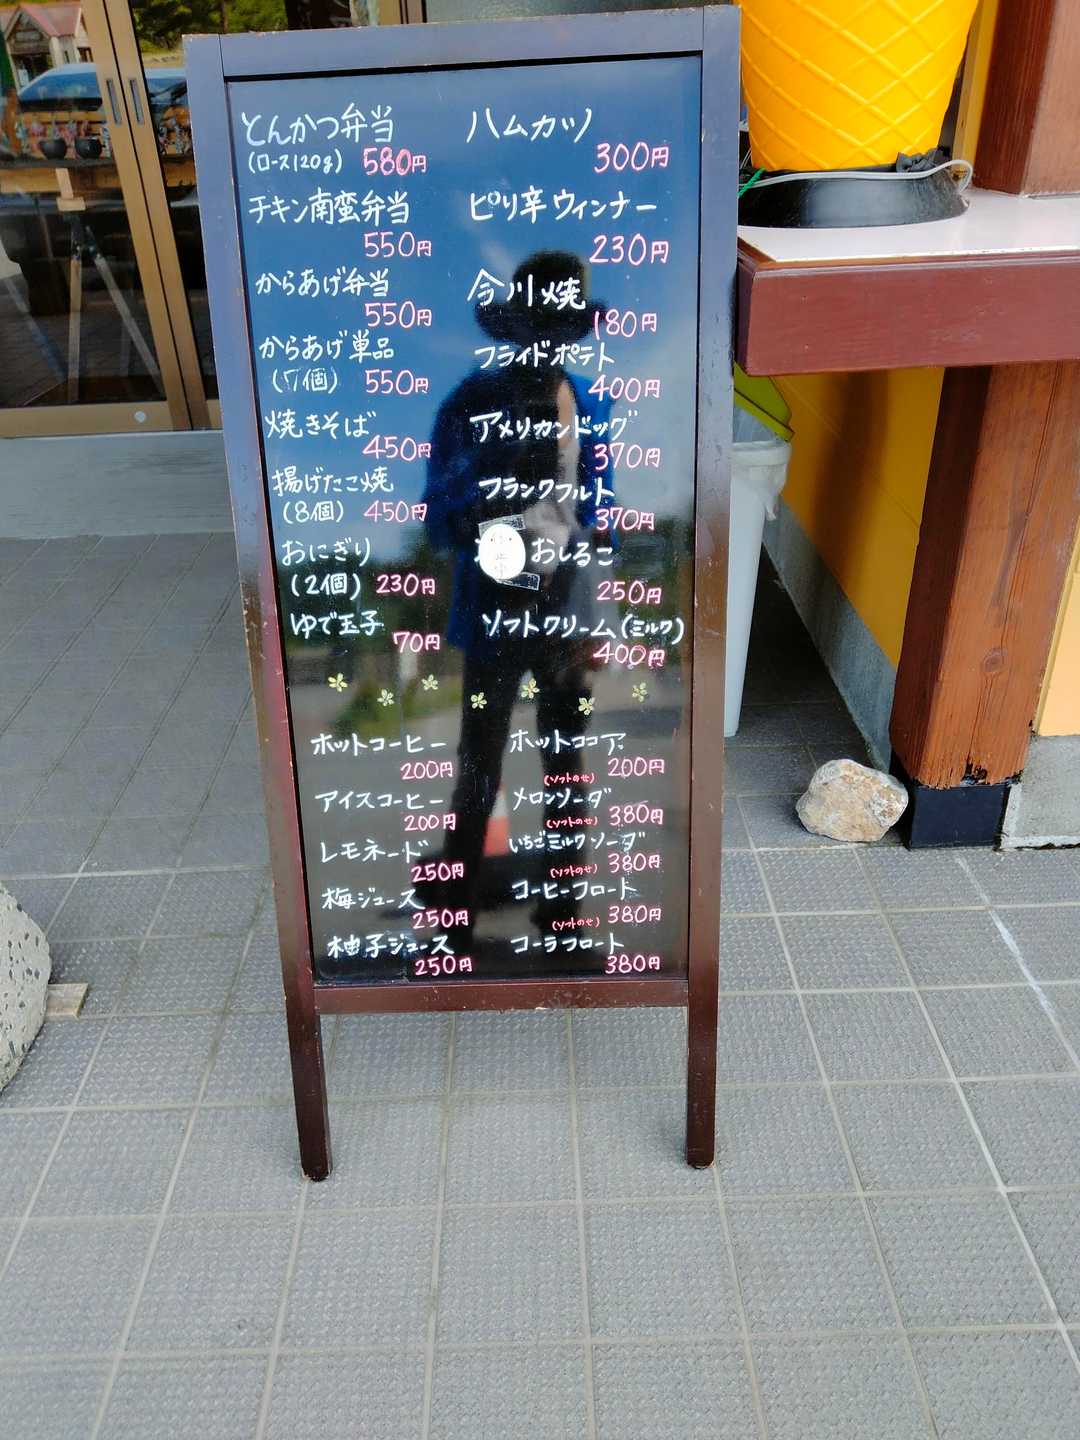 とんかつ弁当
(ロース120g) 580円
チキン南蛮弁当
550円
からあげ弁当
550円
からあげ単品
(7個) 550円
焼きそば
450円
揚げたこ焼
(8個) 450円
おにぎり
(2個) 230円
ゆで玉子
70円
ハムカツ
300円
ピリ辛ウィンナー
230円
今川焼
180円
フライドポテト
400円
アメリカンドッグ
370円
フランクフルト
370円
おしるこ
250円
ソフトクリーム(ミルク)
400円
ホットコーヒー
200円
アイスコーヒー
200円
レモネード
250円
梅ジュース
250円
柚子ジュース
250円
ホットココア
200円
(ソフトのせ)
メロンソーダ
(ソフトのせ) 380円
いちごミルクソーダ
(ソフトのせ) 380円
コーヒーフロート
(ソフトのせ) 380円
コーラフロート
380円